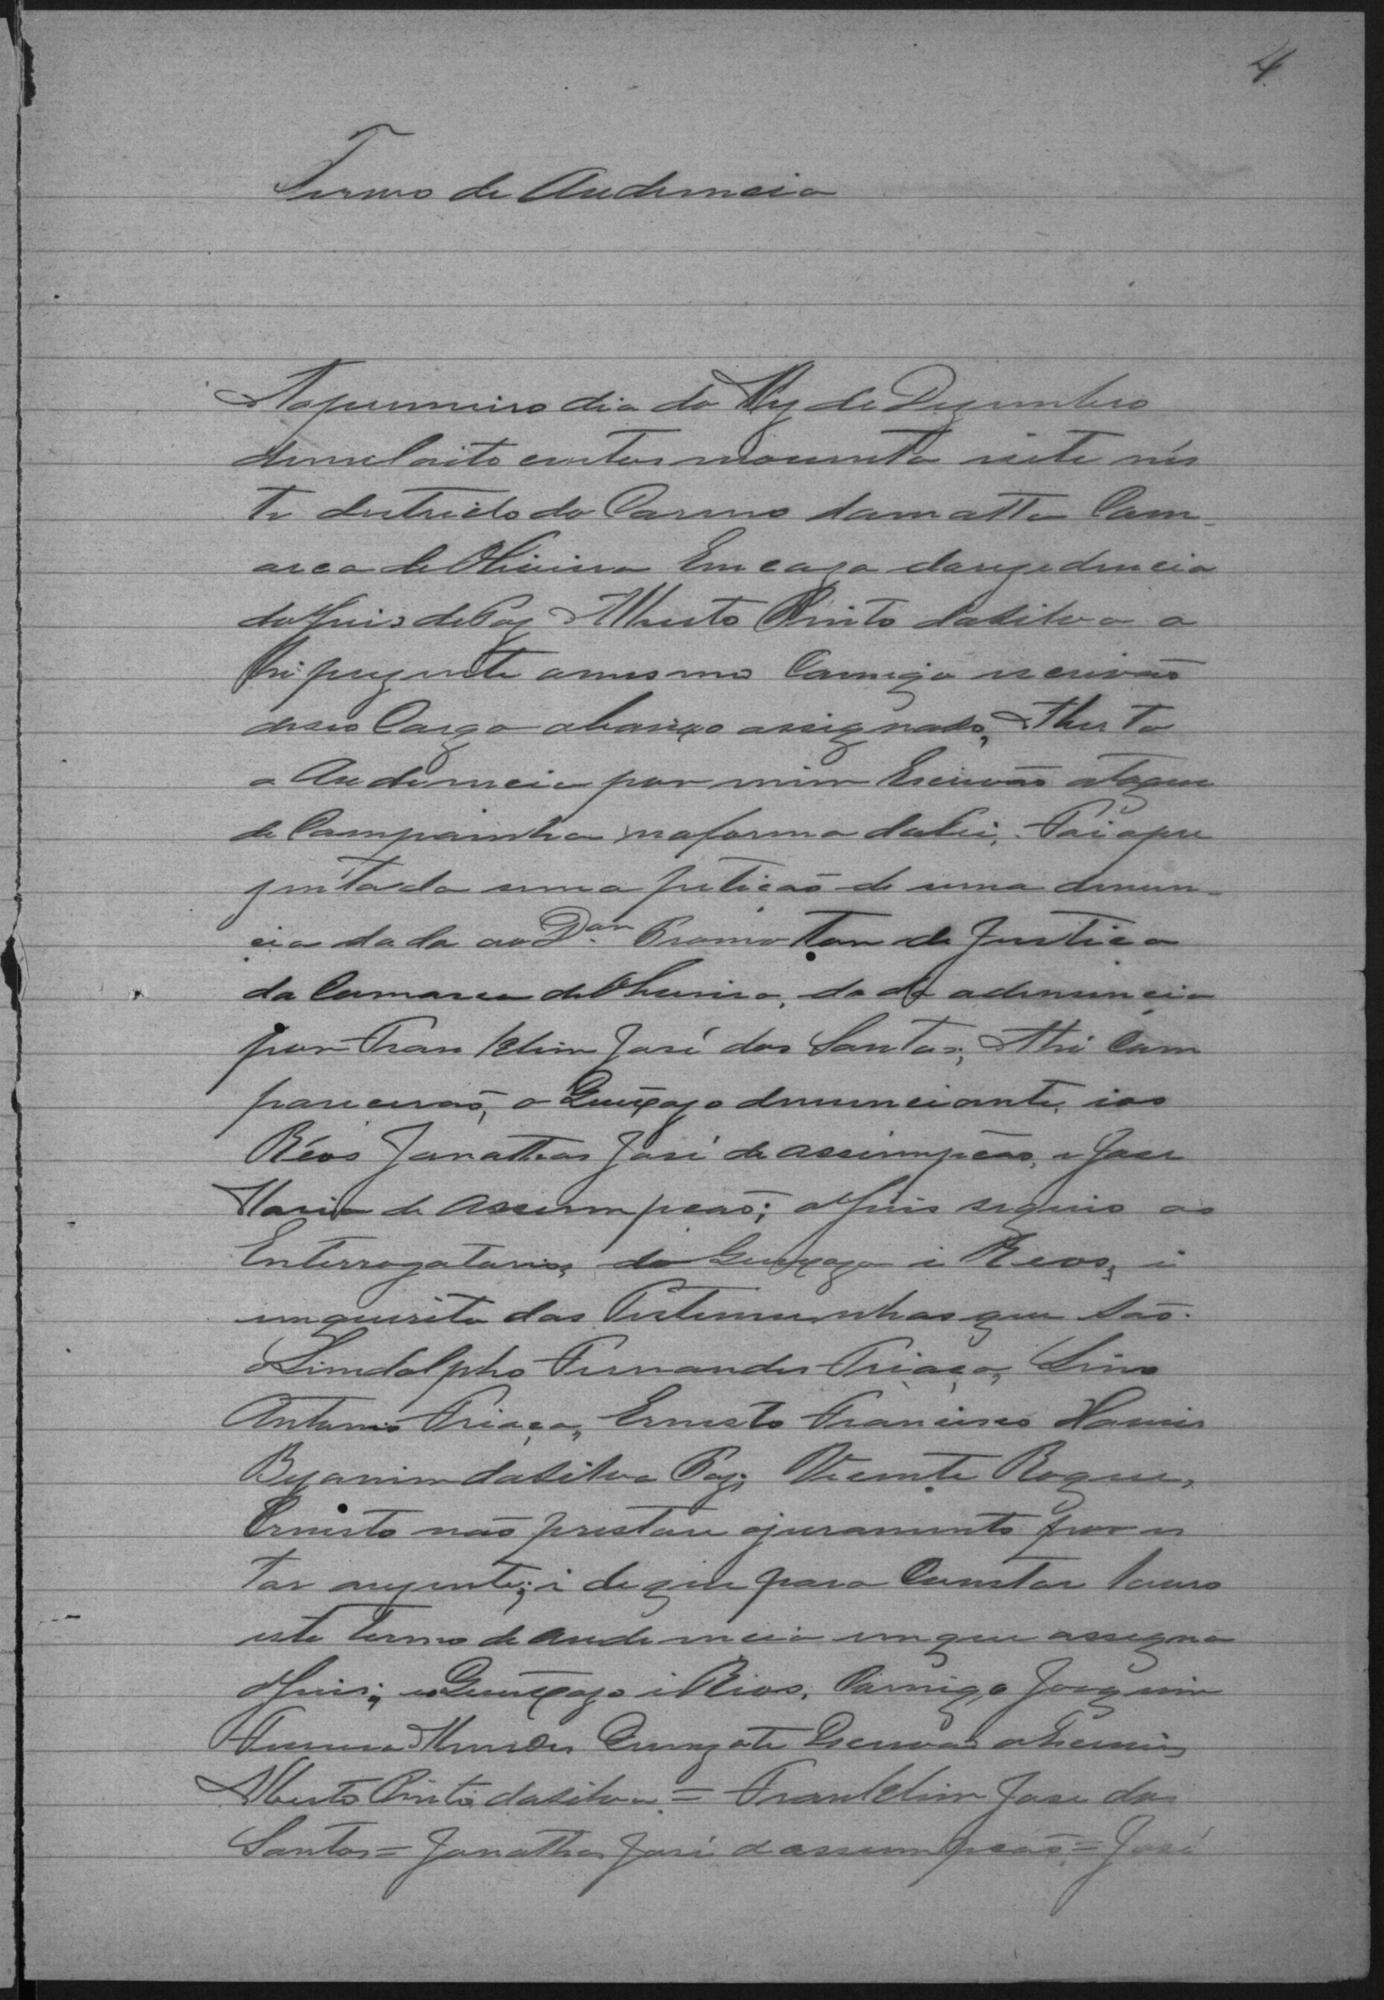 4
Termo de Audencia
Aoprimeiro dia do Mez de Dezembro
demeloito centos noventa isete nés
te destricto do Carmo damatta Com
arca de Oliveira Em caza darezedencia
do Juis de Paz Alberto Pinto daSilva a
hi prezente omesmo Comigo escrivão
deseo Cargo abaixo assignado, Aberta
a Audencia por mim Escrivão atoque
de Campainha naforma daLei, Foi apre
zentada uma peticão de uma denun-
cia dada ao Dor. Promotor de Justica
da Comarca de Oliveira, dada adenuncia
por Franklim José dos Santos; Ahi Com
parecerão, o Queixozo denunciante, ios
Réos Jonathas José de assumpcão, e José
Maria de Assumpcão; oJuis seguio os
Enterrogatorios, do Queixozo i Reos, i
enquirito das Testemunhas que são
Lindolpho Fernandes Friaça, Lino
Antonio Friaça, Ernesto Francisco
Bejamim daSilva Paz, Vicente Roque,
Ernisto não prestou ojuramento por es
tar auzente; i deque para Constar lavro
este termo de audencia emque assigna
oJuis, eo Queixozo i Réos, Comigo Joaquim
Escrivão oEscrevi
Alberto Pinto daSilva = Franklim José dos
Santos = Jonathas José d assumpcão = José